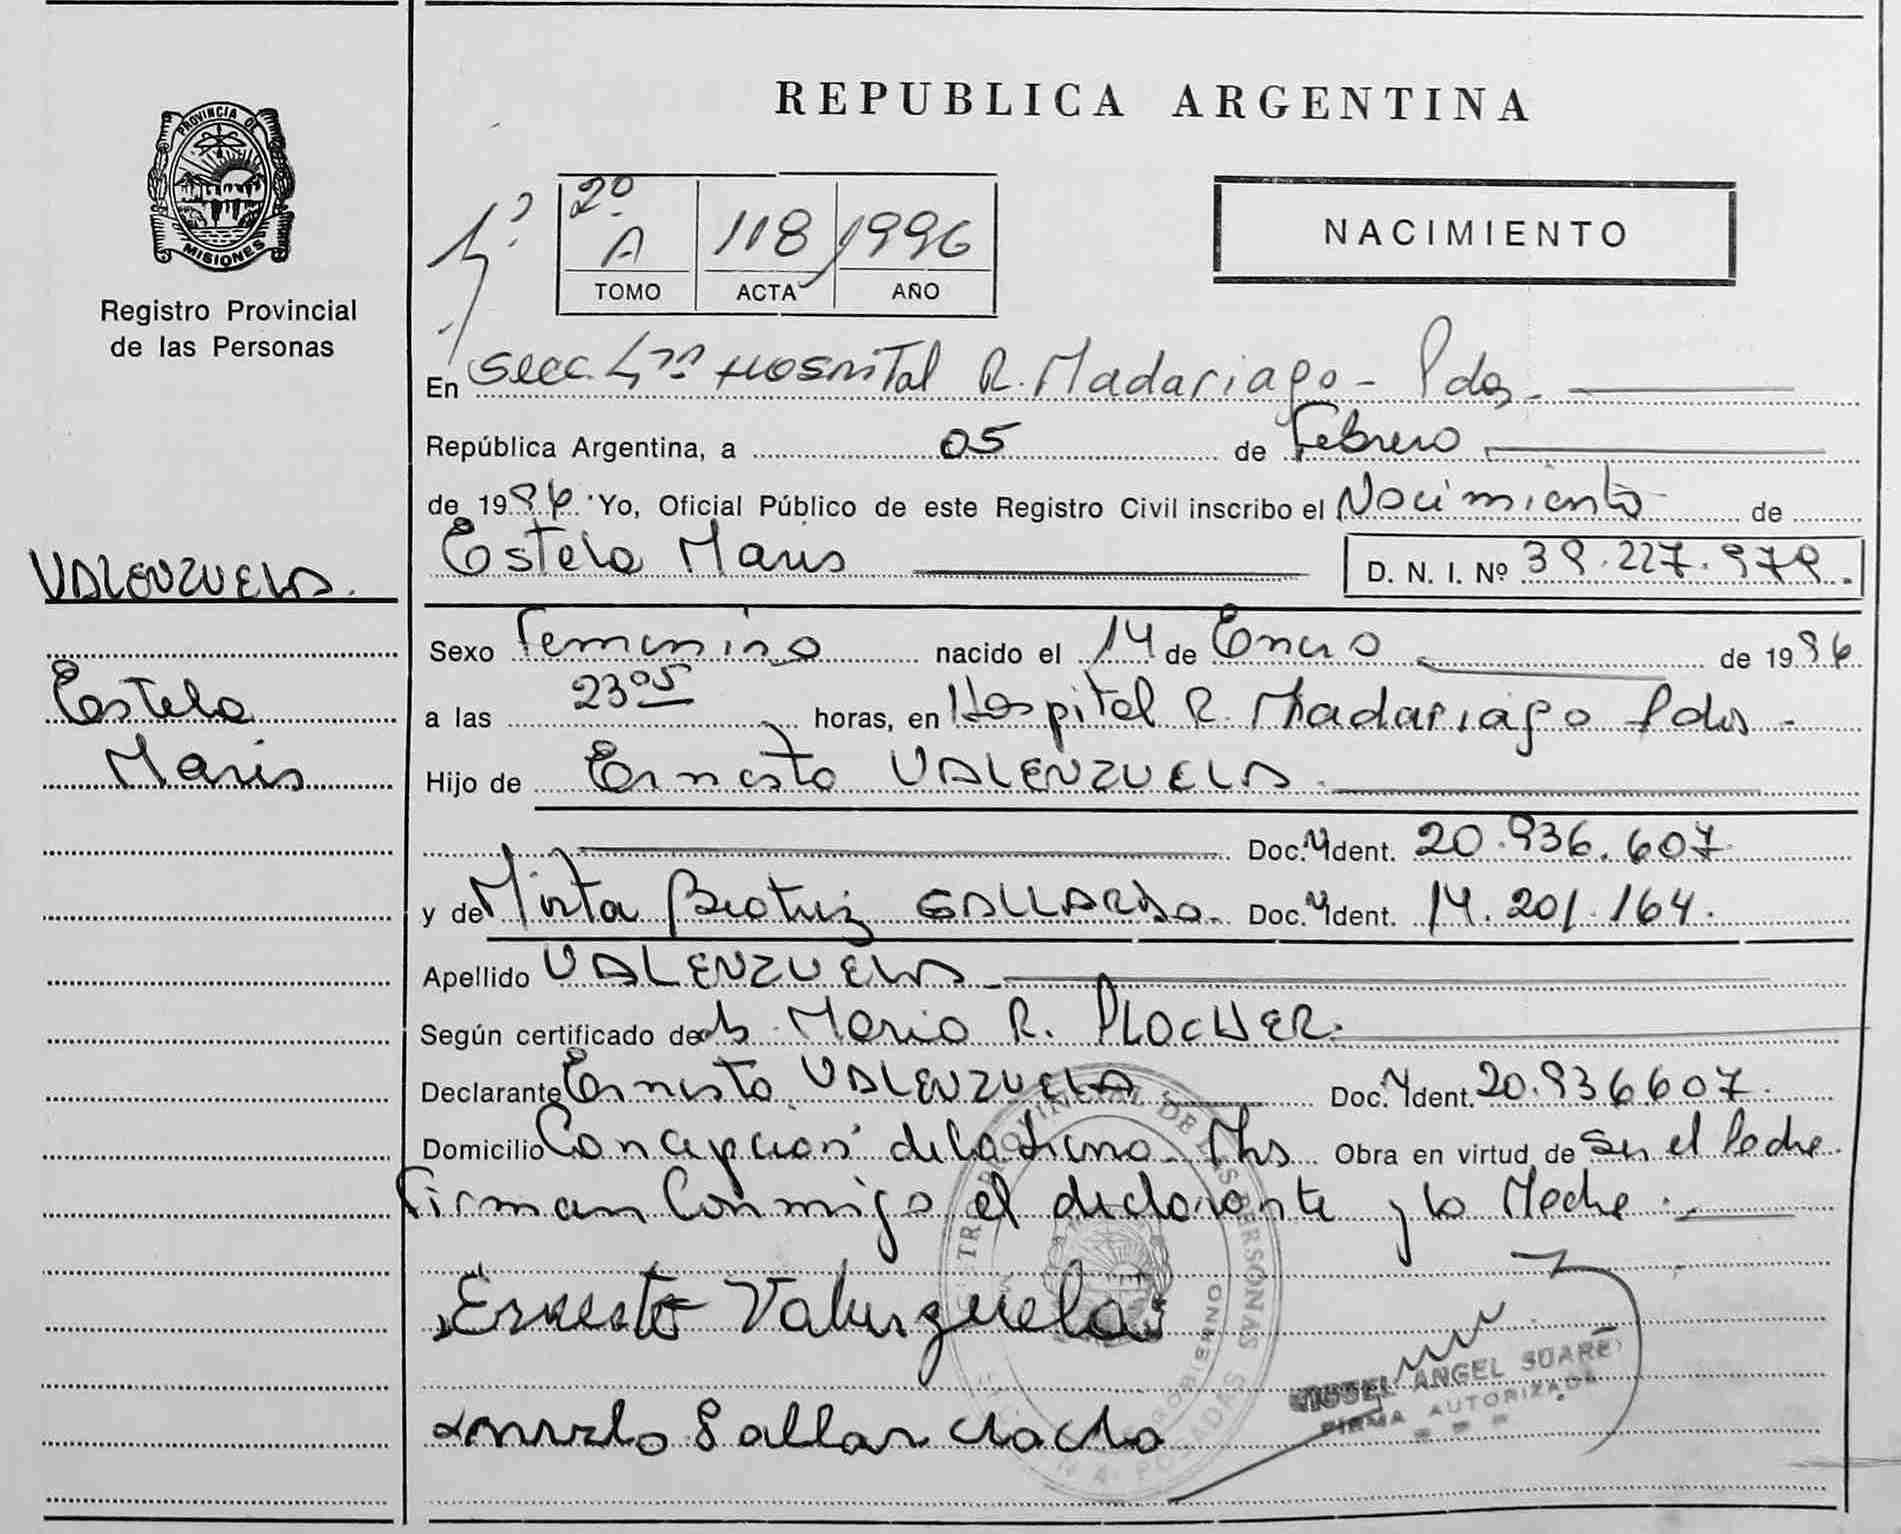 PROVINCIA DE
MISIONES
Registro Provincial
de las Personas
VALENZUELA.
Estela
Maris
REPUBLICA ARGENTINA
NACIMIENTO
2º
A 118 1996
TOMO ACTA AÑO
En Secc. Hospital R. Madariaga - Pdas -
República Argentina, a 05 de Febrero
de 1996. Yo, Oficial Público de este Registro Civil inscribo el Nacimiento de
Estela Maris D. N. I. Nº 39.227.979.
Sexo Femenino nacido el 14 de Enero de 1996
a las 23 05 horas, en Hospital R. Madariaga Pdas -
Hijo de Ernesto VALENZUELA.
Doc. Ident. 20.936.607
y de Mirta Beatriz GALLARDO. Doc. Ident. 14.201.164.
Apellido VALENZUELA
Según certificado de Mario R. PLOCHER.
Declarante Ernesto VALENZUELA Doc. Ident. 20.936607.
Domicilio Concepcion de la Sierra - Mns Obra en virtud de ser el Padre.
Firman Conmigo el declarante y la Madre.
Ernesto Valenzuela
MIGUEL ANGEL SUAREZ
FIRMA AUTORIZADA